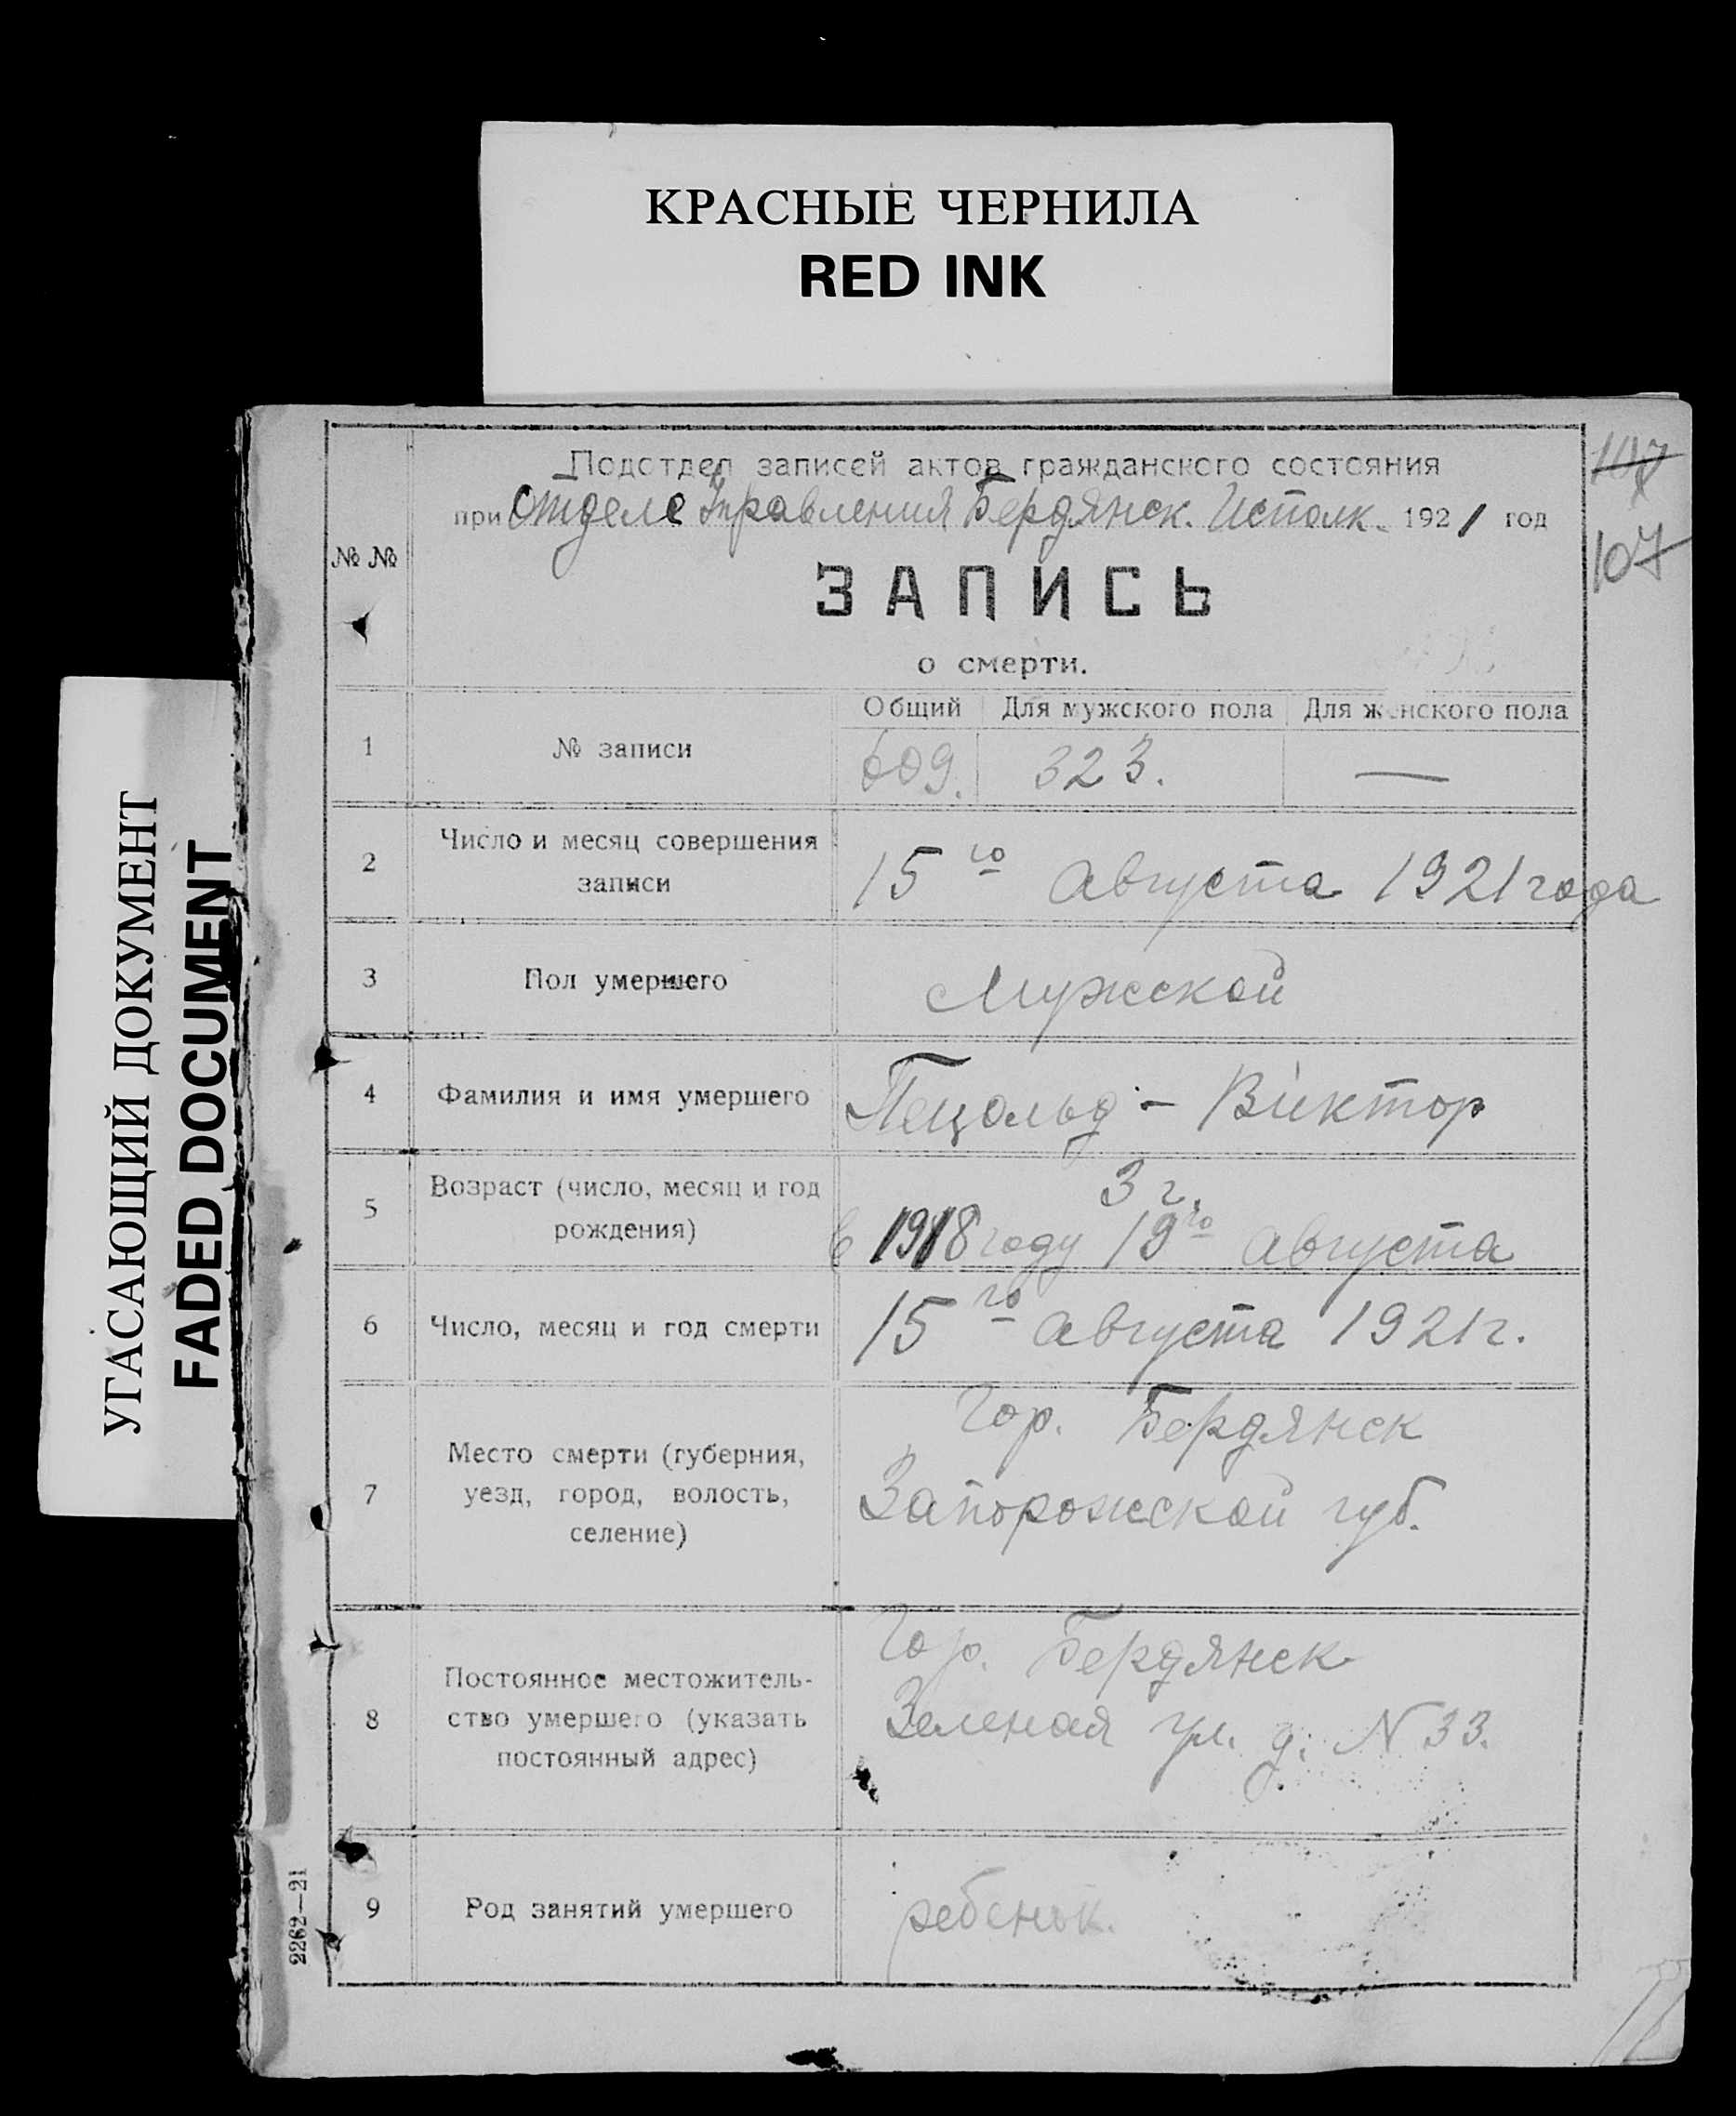 КРАСНЫЕ ЧЕРНИЛА
RED INK
УГАСАЮЩИЙ ДОКУМЕНТ
FADED DOCUMENT
107
107
№ №
Подотдел записей актов гражданского состояния
при Отделе Управления Бердянск. Исполк. 1921 год
ЗАПИСЬ
о смерти.
Общий Для мужского пола Для женского пола
1 № записи 609. 323. —
2 Число и месяц совершения
записи 15го Августа 1921 года
3 Пол умершего Мужской
4 Фамилия и имя умершего Пецольд - Виктор
3 г.
5 Возраст (число, месяц и год
рождения) в 1918 году 19го Августа
6 Число, месяц и год смерти 15го Августа 1921 г.
Гор. Бердянск
7 Место смерти (губерния,
уезд, город, волость, Запорожской губ.
селение)
Гор. Бердянск
8 Постоянное местожитель-
ство умершего (указать Зеленая ул. д. N 33.
постоянный адрес)
9 Род занятий умершего ребенок.
2262—21